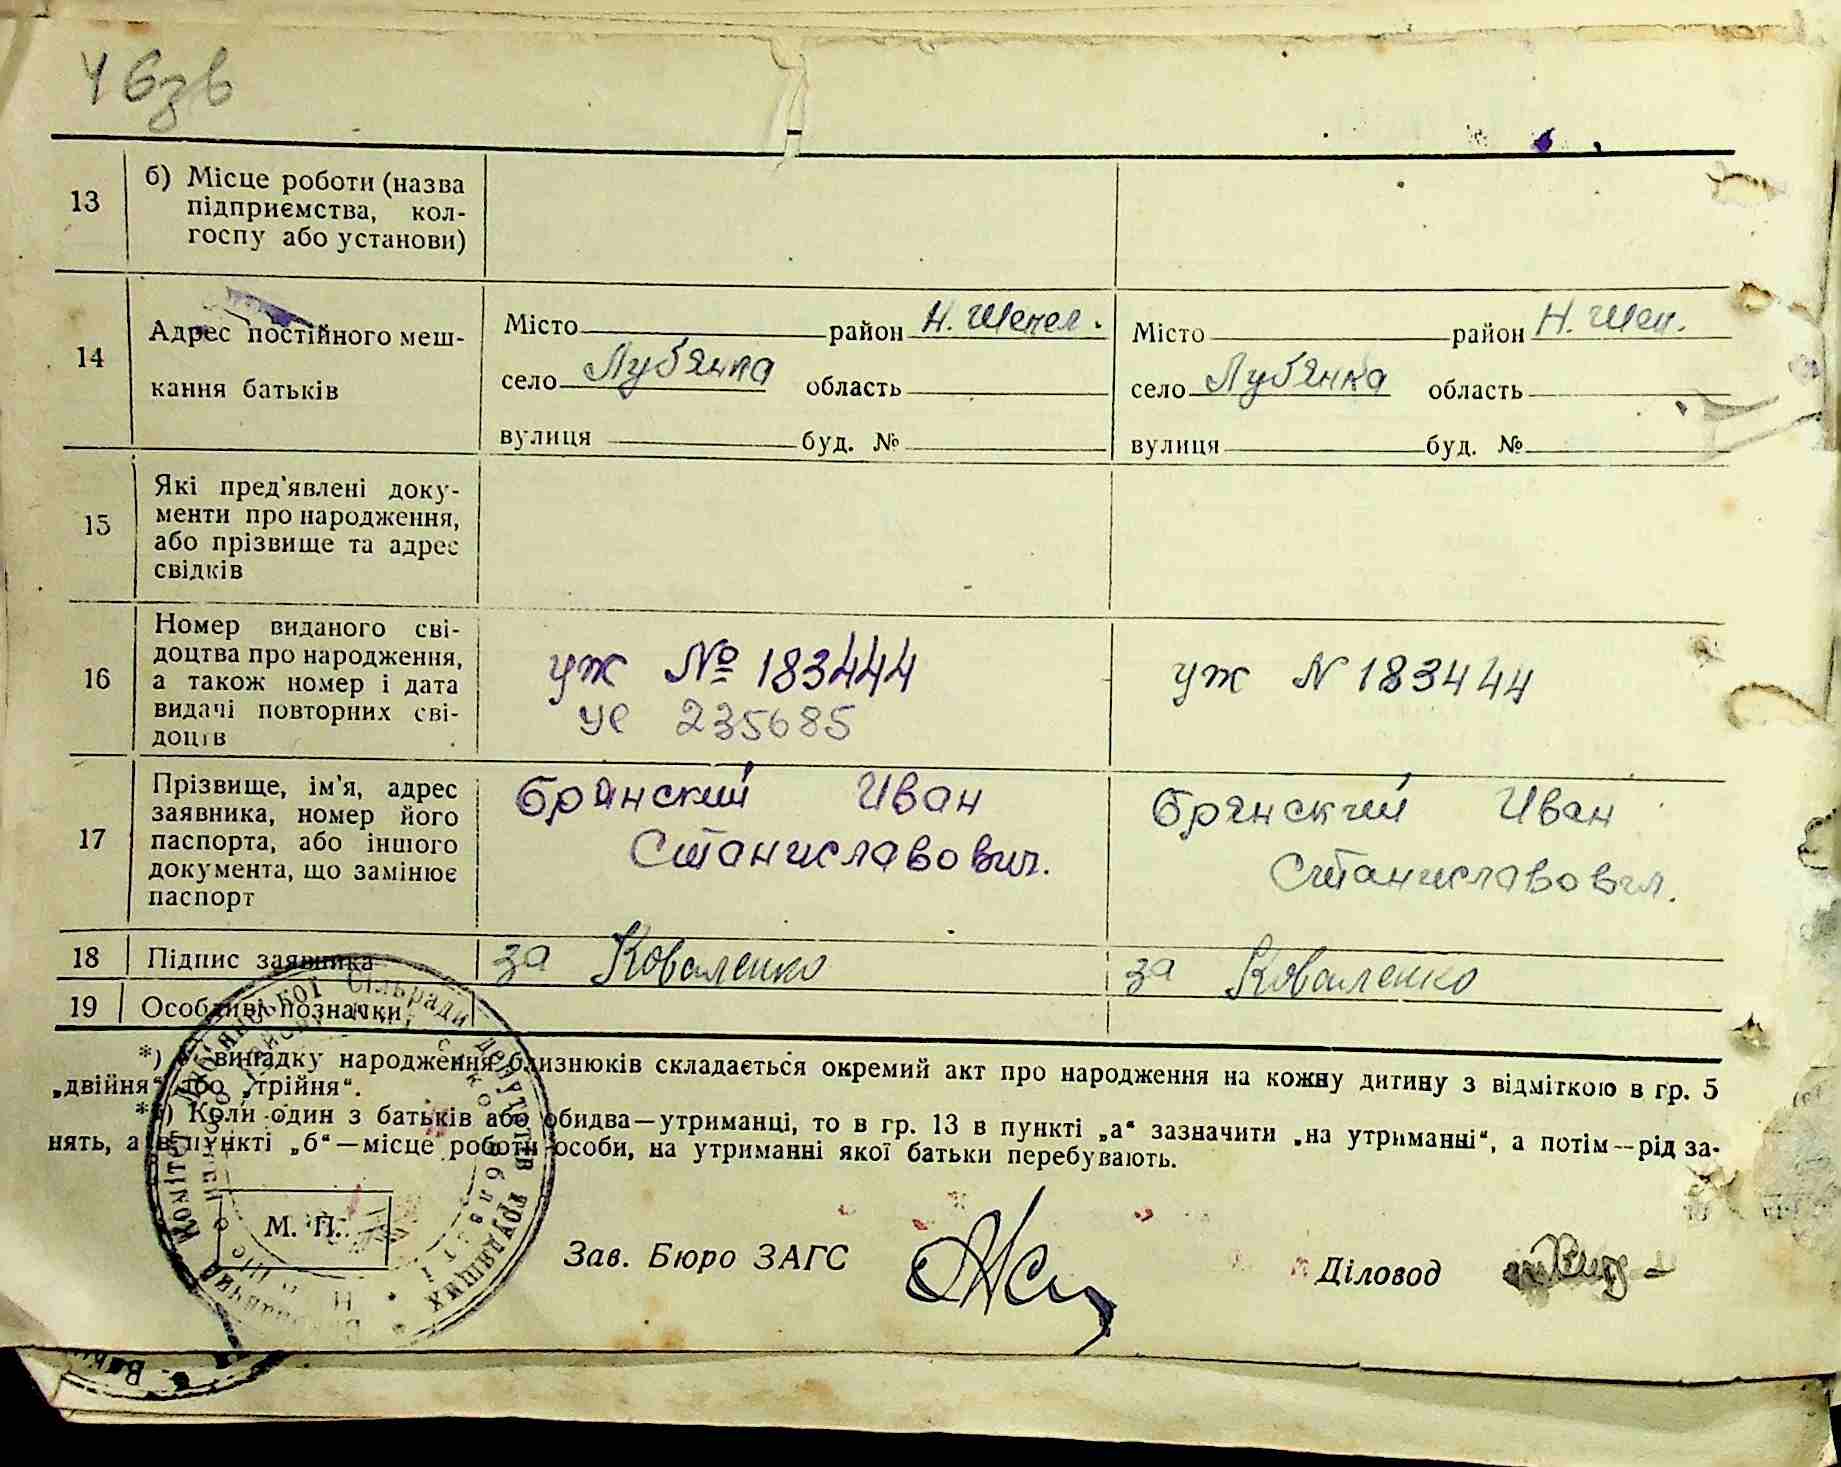 13 б) Місце роботи (назва
підприємства, кол-
госпу або установи)
14 Адрес постійного меш-
кання батьків
Місто район Н. Шепел.
село Луб'янка область
вулиця буд. №
Місто район Н. Шеп.
село Луб'янка область
вулиця буд. №
15 Які пред'явлені доку-
менти про народження,
або прізвище та адрес
свідків
16 Номер виданого сві-
доцтва про народження,
а також номер і дата
видачі повторних сві-
доцтв
уж № 183444
УС 235685
уж N 183444
17 Прізвище, ім'я, адрес
заявника, номер його
паспорта, або іншого
документа, що замінює
паспорт
Брянский Иван
Станиславович.
Брянский Иван
Станиславович.
18 Підпис заявника за Коваленко за Коваленко
19 Особливі позначки
*) У випадку народження близнюків складається окремий акт про народження на кожну дитину з відміткою в гр. 5
„двійня“ або „трійня“.
**) Коли один з батьків або обидва—утриманці, то в гр. 13 в пункті „а“ зазначити „на утриманні“, а потім—рід за-
нять, а в пункті „б“—місце роботи особи, на утриманні якої батьки перебувають.
М. П.
Зав. Бюро ЗАГС
Діловод
Сільради депутатів трудящих